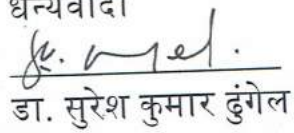 धन्यवाद।
डा. सुरेश कुमार ढुंगेल